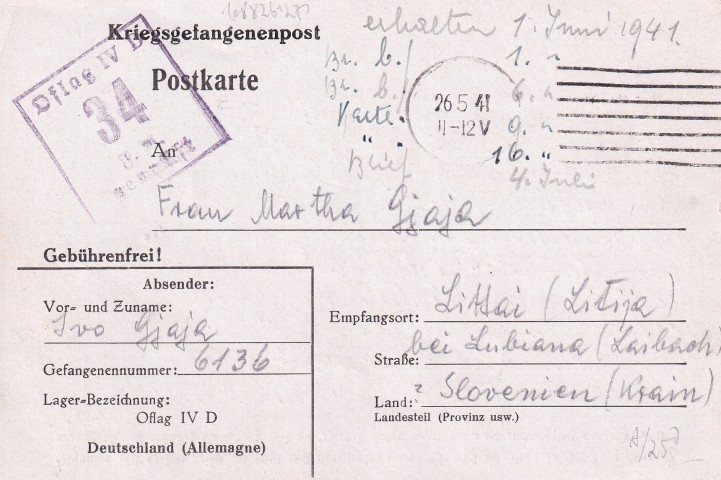 Kriegsgefangenenpost
erhalten 1. Juni 1941.
Postkarte
Br. b. 1. "
Br. b. 6. "
Karte. 9. "
" 16. "
Brief 4. Juli
Oflag IV D
34
geprüft
26.5.41
11-12 V
An
Frau Martha Gjaja
Gebührenfrei!
Absender:
Vor- und Zuname:
Ivo Gjaja
Gefangenennummer: 6136
Lager-Bezeichnung:
Oflag IV D
Deutschland (Allemagne)
Empfangsort: Littai (Litija)
Straße: bei Lubiana (Laibach)
Land: Slovenien (Krain)
Landesteil (Provinz usw.)